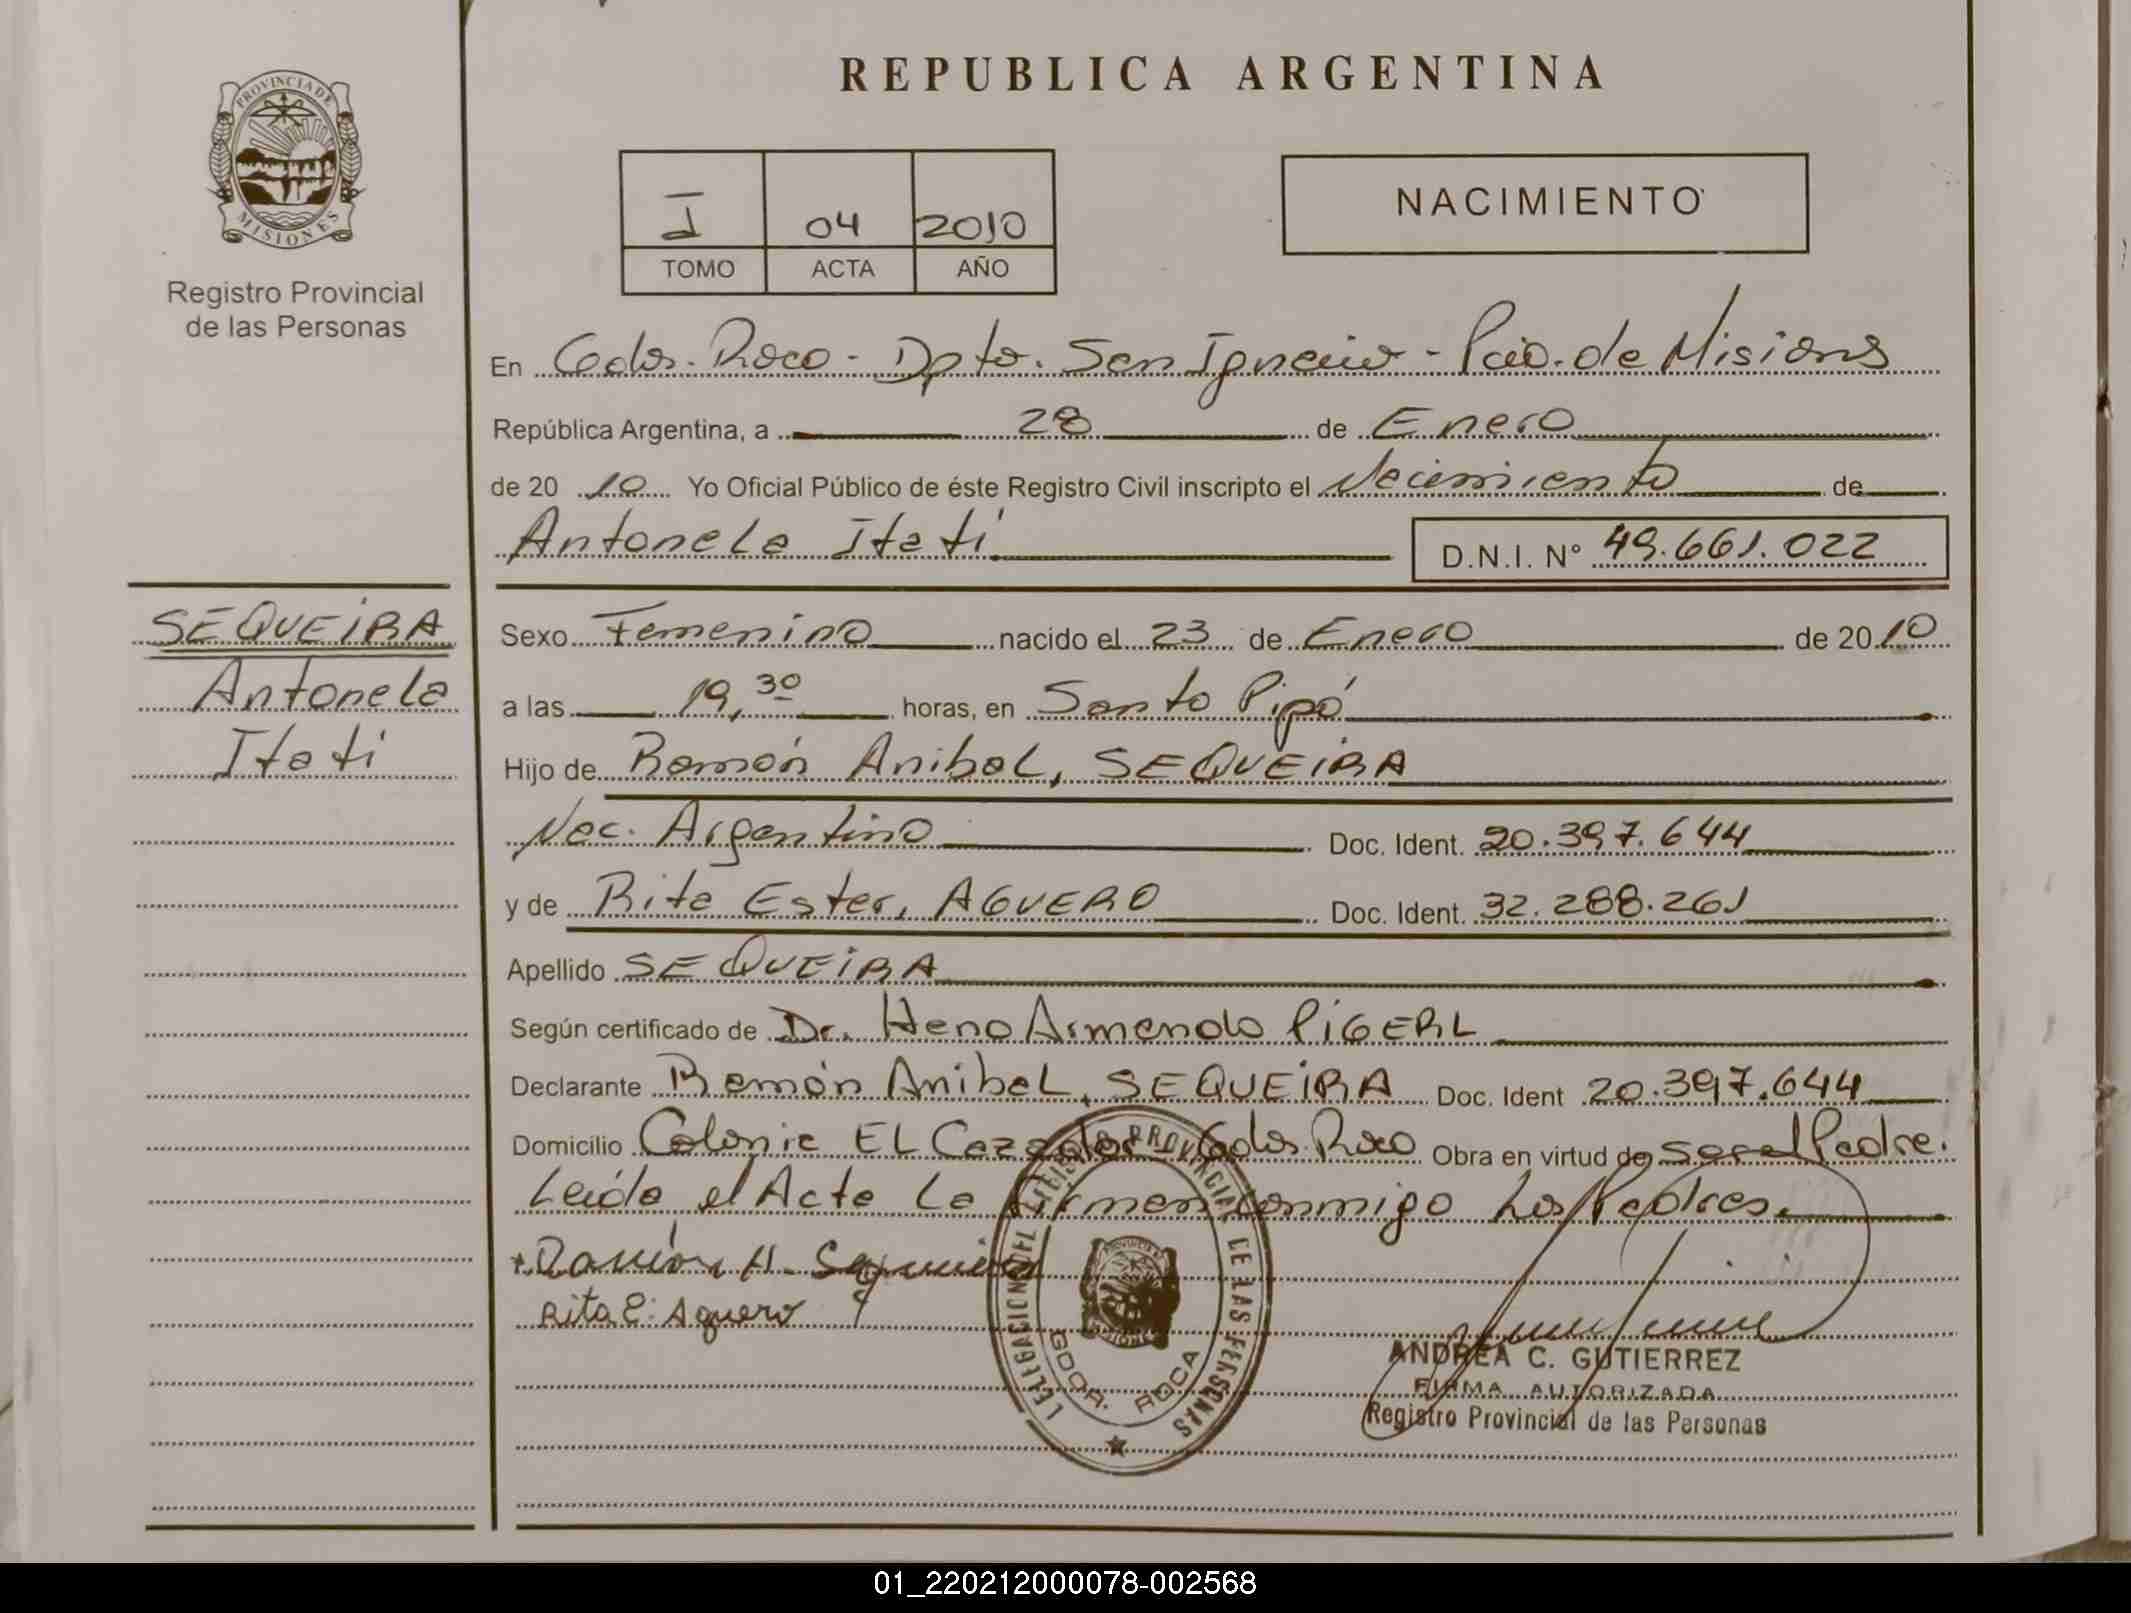 REPUBLICA ARGENTINA
PROVINCIA DE
MISIONES
Registro Provincial
de las Personas
I 04 2010
TOMO ACTA AÑO
NACIMIENTO
En Gdor. Roca - Dpto. San Ignacio - Pcia. de Misiones
República Argentina, a 28 de Enero
de 20 10 Yo Oficial Público de éste Registro Civil inscripto el Nacimiento de
Antonela Itati D.N.I. Nº 49.661.022
SEQUEIRA
Antonela
Itati
Sexo Femenino nacido el 23 de Enero de 20 10
a las 19,30 horas, en Santo Pipó
Hijo de Ramón Anibal, SEQUEIRA
Nac. Argentino Doc. Ident. 20.397.644
y de Rita Ester, AGUERO Doc. Ident. 32.288.261
Apellido SEQUEIRA
Según certificado de Dr. Armando PIGERL
Declarante Ramón Anibal, SEQUEIRA Doc. Ident 20.397.644
Domicilio Colonia EL Cazador - Gdor. Roca Obra en virtud de ser el Padre.
Leída el Acta La firman conmigo Los Padres.
Ramón A. Sequeira
Rita E. Aguero
DELEGACION DEL REGISTRO PROVINCIAL DE LAS PERSONAS
GDOR. ROCA
ANDREA C. GUTIERREZ
FIRMA AUTORIZADA
Registro Provincial de las Personas
01_220212000078-002568